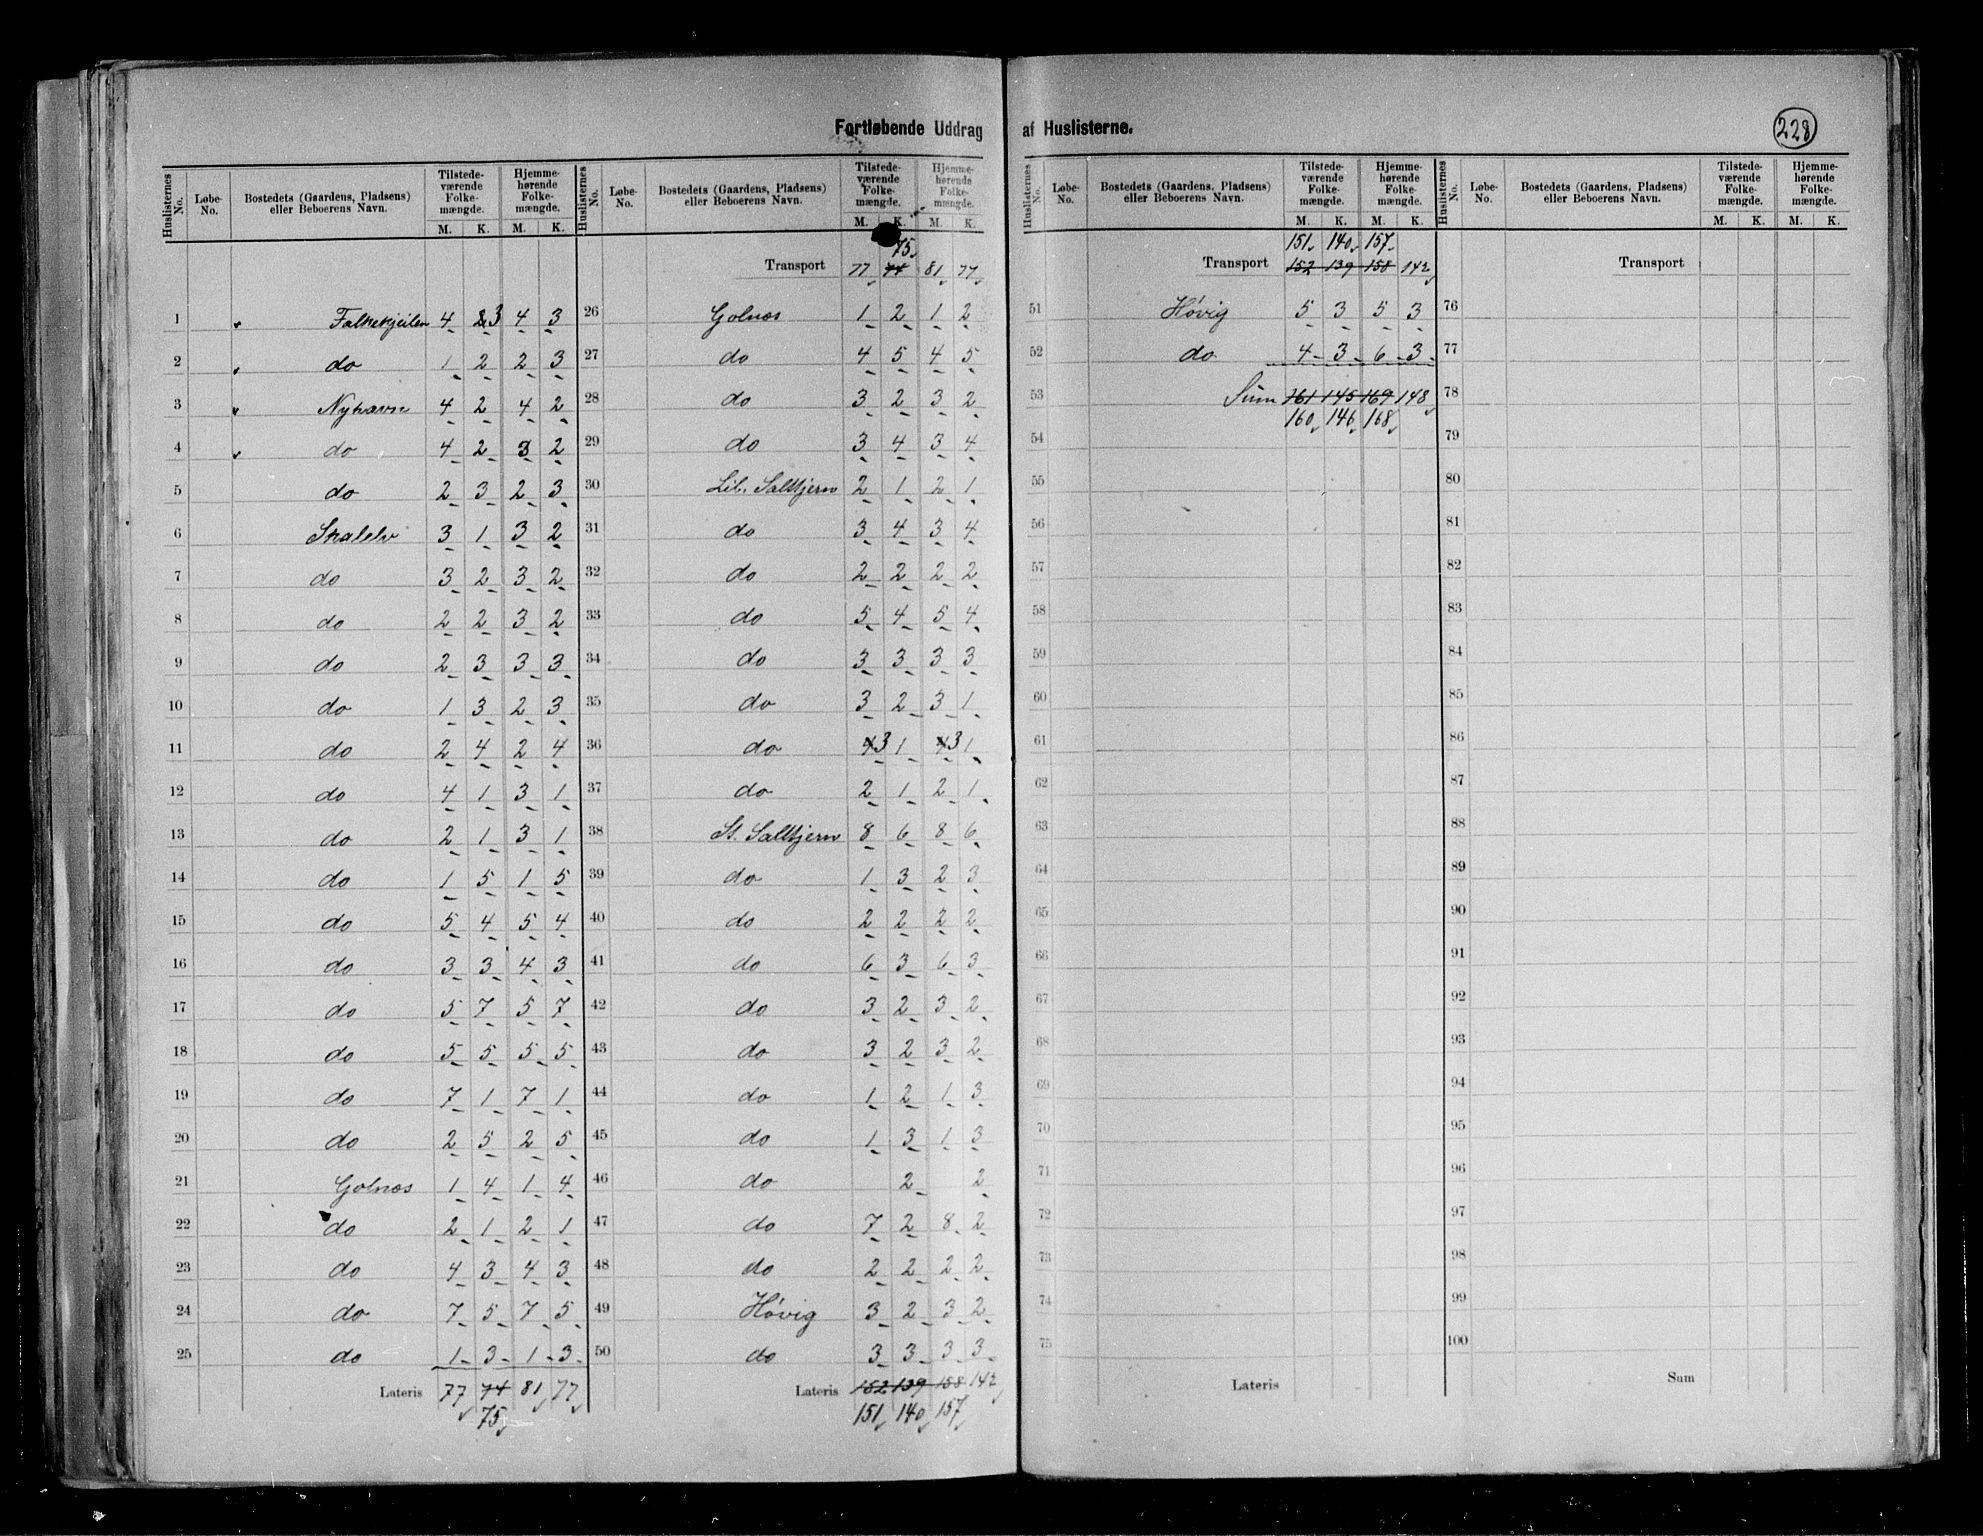 Fortløbende Uddrag af Huslisterne.
228
Huslisternes No. Løbe-No. Bostedets (Gaardens, Pladsens) eller Beboerens Navn. Tilstedeværende Folkemængde. M. K. Hjemmehørende Folkemængde. M. K.
1 Falkekjeilen 4 2 3 4 3
2 do 1 2 2 3
3 Nyhavn 4 2 4 2
4 do 4 2 3 2
5 do 2 3 2 3
6 Skalelv 3 1 3 2
7 do 3 2 3 2
8 do 2 2 3 2
9 do 2 3 3 3
10 do 1 3 2 3
11 do 2 4 2 4
12 do 4 1 3 1
13 do 2 1 3 1
14 do 1 5 1 5
15 do 5 4 5 4
16 do 3 3 4 3
17 do 5 7 5 7
18 do 5 5 5 5
19 do 7 1 7 1
20 do 2 5 2 5
21 Golnæs 1 4 1 4
22 do 2 1 2 1
23 do 4 3 4 3
24 do 7 5 7 5
25 do 1 3 1 3
Lateris 77 74 81 77
75
Huslisternes No. Løbe-No. Bostedets (Gaardens, Pladsens) eller Beboerens Navn. Tilstedeværende Folkemængde. M. K. Hjemmehørende Folkemængde. M. K.
75
Transport 77 74 81 77
26 Golnæs 1 2 1 2
27 do 4 5 4 5
28 do 3 2 3 2
29 do 3 4 3 4
30 Lil. Saltjern 2 1 2 1
31 do 3 4 3 4
32 do 2 2 2 2
33 do 5 4 5 4
34 do 3 3 3 3
35 do 3 2 3 1
36 do 4 3 1 4 3 1
37 do 2 1 2 1
38 St. Saltjern 8 6 8 6
39 do 1 3 2 3
40 do 2 2 2 2
41 do 6 3 6 3
42 do 3 2 3 2
43 do 3 2 3 2
44 do 1 2 1 3
45 do 1 3 1 3
46 do 2 2
47 do 7 2 8 2
48 do 2 2 2 2
49 Høvig 3 2 3 2
50 do 3 3 3 3
Lateris 152 139 158 142
151 140 157
Huslisternes No. Løbe-No. Bostedets (Gaardens, Pladsens) eller Beboerens Navn. Tilstedeværende Folkemængde. M. K. Hjemmehørende Folkemængde. M. K.
151 140 157
Transport 152 139 158 142
51 Høvig 5 3 5 3
52 do 4 3 6 3
53 Sum 161 145 169 148
160 146 168
54
55
56
57
58
59
60
61
62
63
64
65
66
67
68
69
70
71
72
73
74
75
Lateris
Huslisternes No. Løbe-No. Bostedets (Gaardens, Pladsens) eller Beboerens Navn. Tilstedeværende Folkemængde. M. K. Hjemmehørende Folkemængde. M. K.
Transport
76
77
78
79
80
81
82
83
84
85
86
87
88
89
90
91
92
93
94
95
96
97
98
99
100
Sum